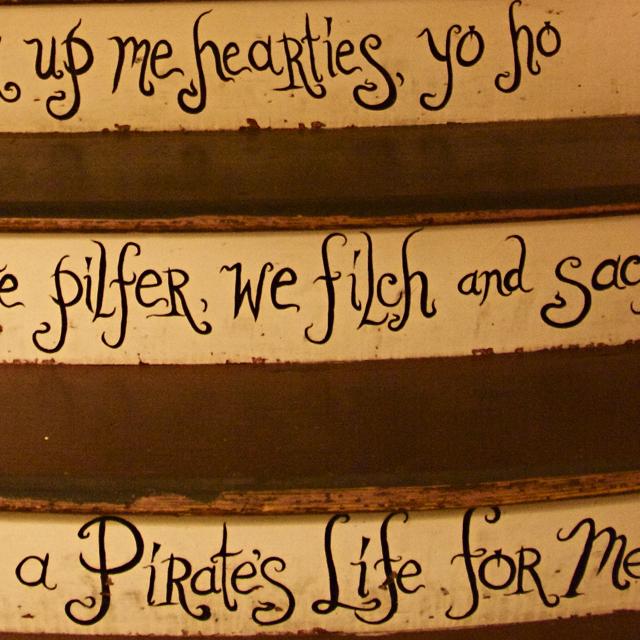 up me hearties, yo ho
pilfer, we filch and sac
a Pirate's Life for Me